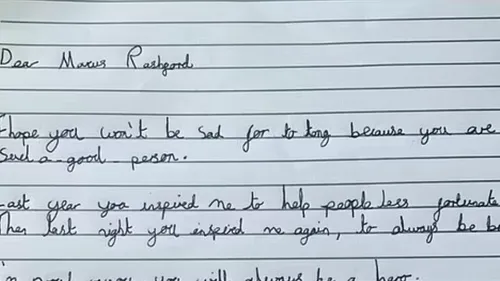 Dear Marcus Rashford
I hope you won't be sad for to long because you are
such a good person.
Last year you inspired me to help people less fortunate
Then last night you inspired me again, to always be
you will always be a hero.